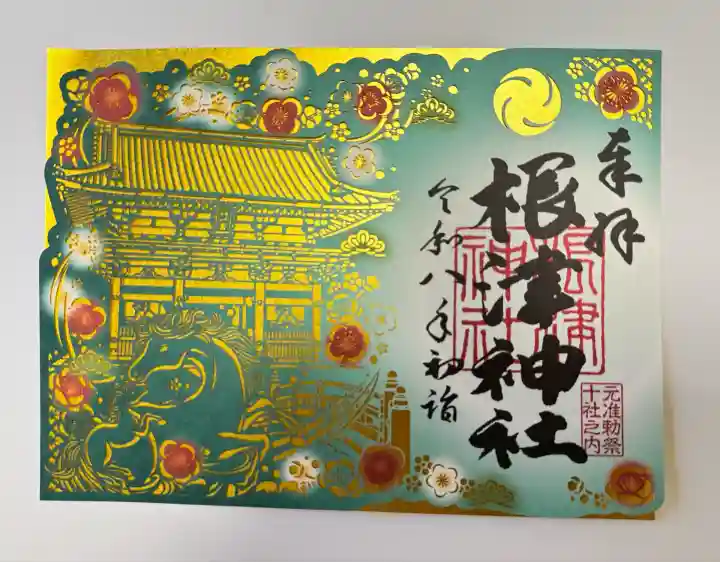 奉拝
根津神社
令和八年初詣
根津神社
元准勅祭
十社之内